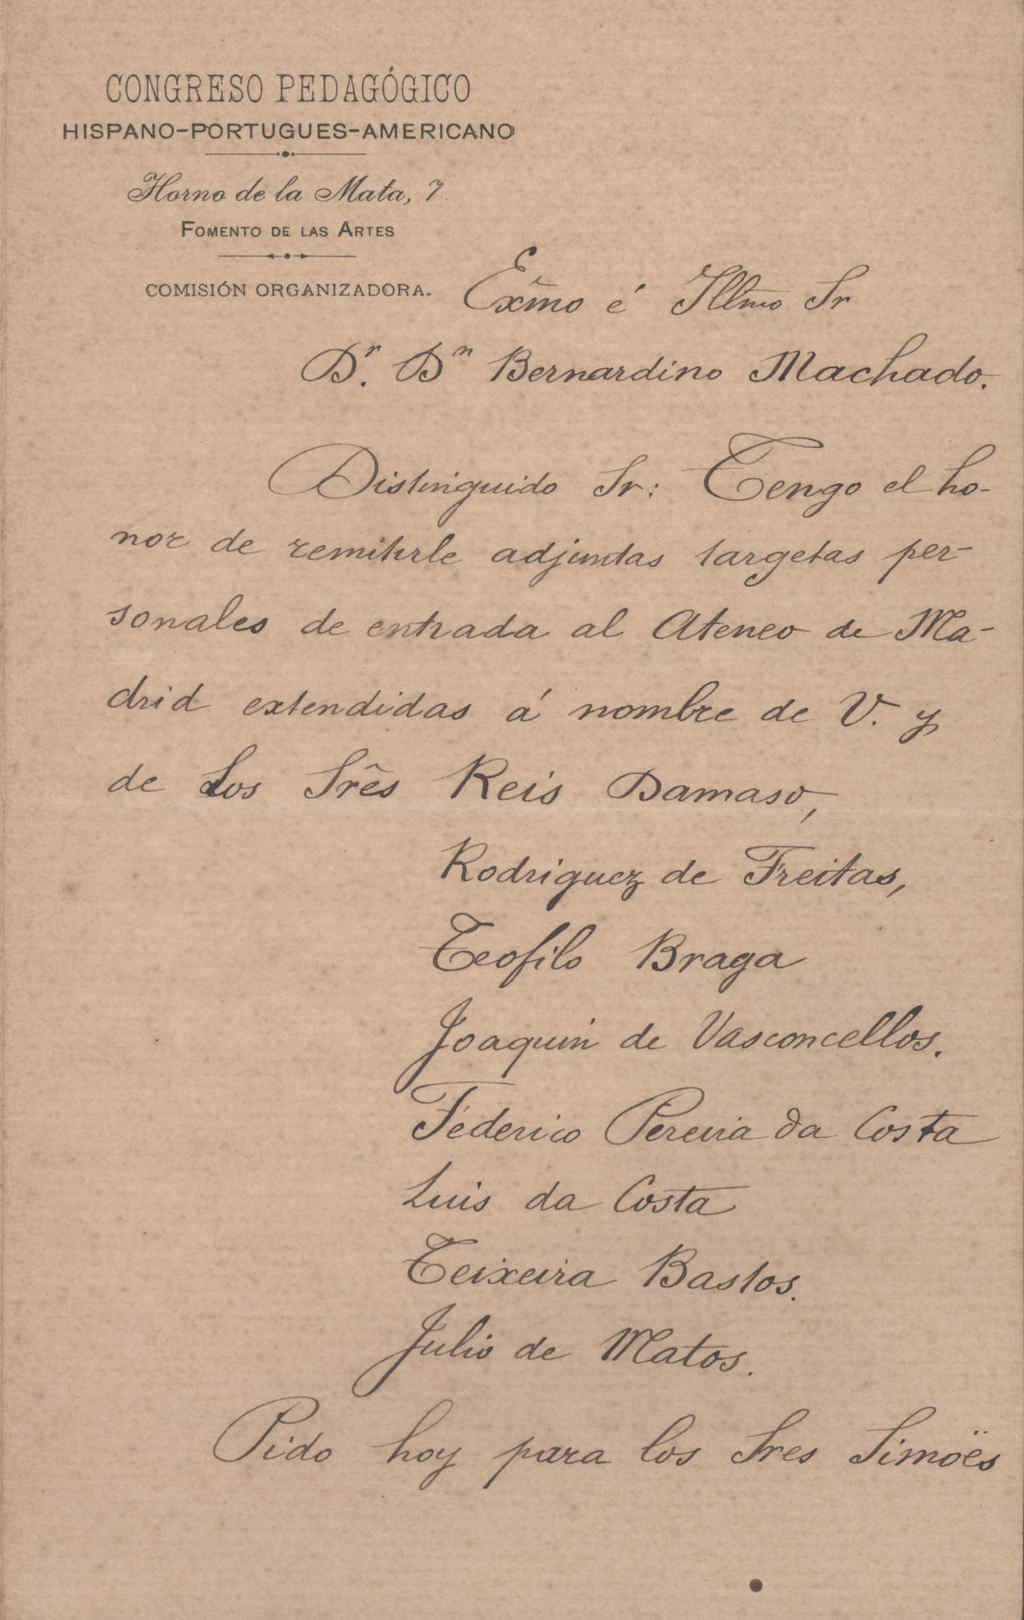 CONGRESO PEDAGÓGICO
HISPANO-PORTUGUES-AMERICANO
Horno de la Mata, 7.
FOMENTO DE LAS ARTES
COMISIÓN ORGANIZADORA.
Exmo é Illmo Sr
Dr. Dn Bernardino Machado.
Distinguido Sr: Tengo el ho-
nor de remitirle adjuntas targetas per-
sonales de entrada al Ateneo de Ma-
drid extendidas á nombre de V. y
de Los Srês Reis Damaso,
Rodriguez de Freitas,
Teofilo Braga
Joaquin de Vasconcellos.
Féderico Pereira da Costa
Luis da Costa
Teixeira Bastos.
Julio de Matos.
Pido hoy para los Sres Simöes